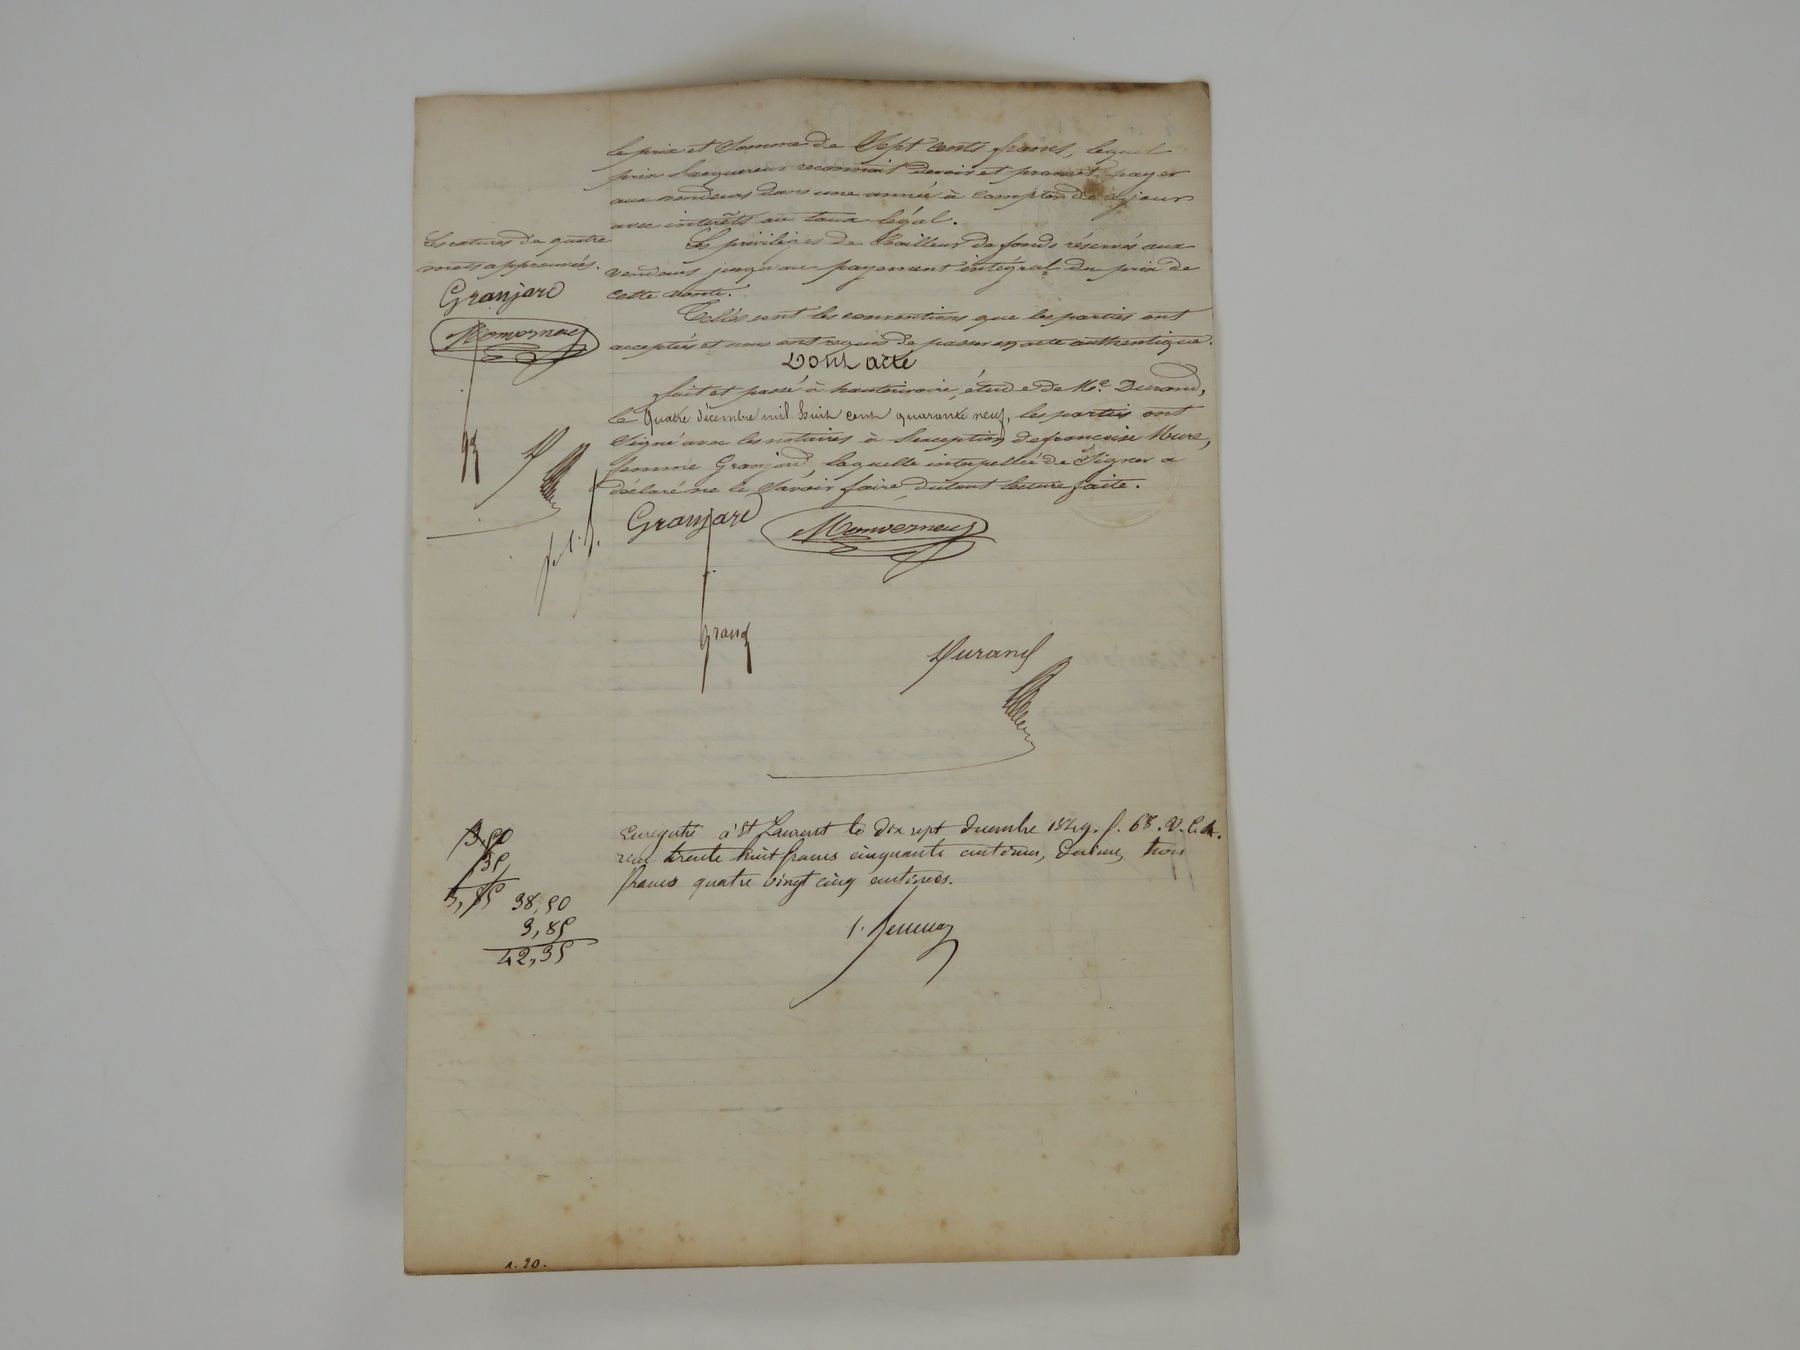 le prix et Somme de Sept cents francs, lequel
prix l'acquereur reconnait devoir et promet payer
aux vendeurs dans une année à compter de ce jour
avec intérêts au taux légal.
Le privilèges de Bailleur de fonds réservés aux
vendeurs jusqu'au payement intégral du prix de
cette vente.
Telles sont les conventions que les parties ont
acceptées et nous ont requis de passer en acte authentique.
Dont acte
fait et passé à hauterivoire, étude de Me. Durand,
le quatre décembre mil huit cent quarante neuf, les parties ont
Signé avec les notaires à l'exception de françoise Mure,
femme Granjard, laquelle interpellée de Signer a
déclaré ne le Savoir faire, du tout lecture faite.
Les ratures de quatre
mots approuvées.
Granjard
Monverneuf
Granjard
Monverneuf
grang
Durand
Enregistré à St Laurent le dix sept decembre 1849. f. 68. V. C.
recu trente huit francs cinquante centimes, Decime, trois
francs quatre vingt cinq centimes.
3,50
35
3,85
38,50
3,85
42,35
r. 20.